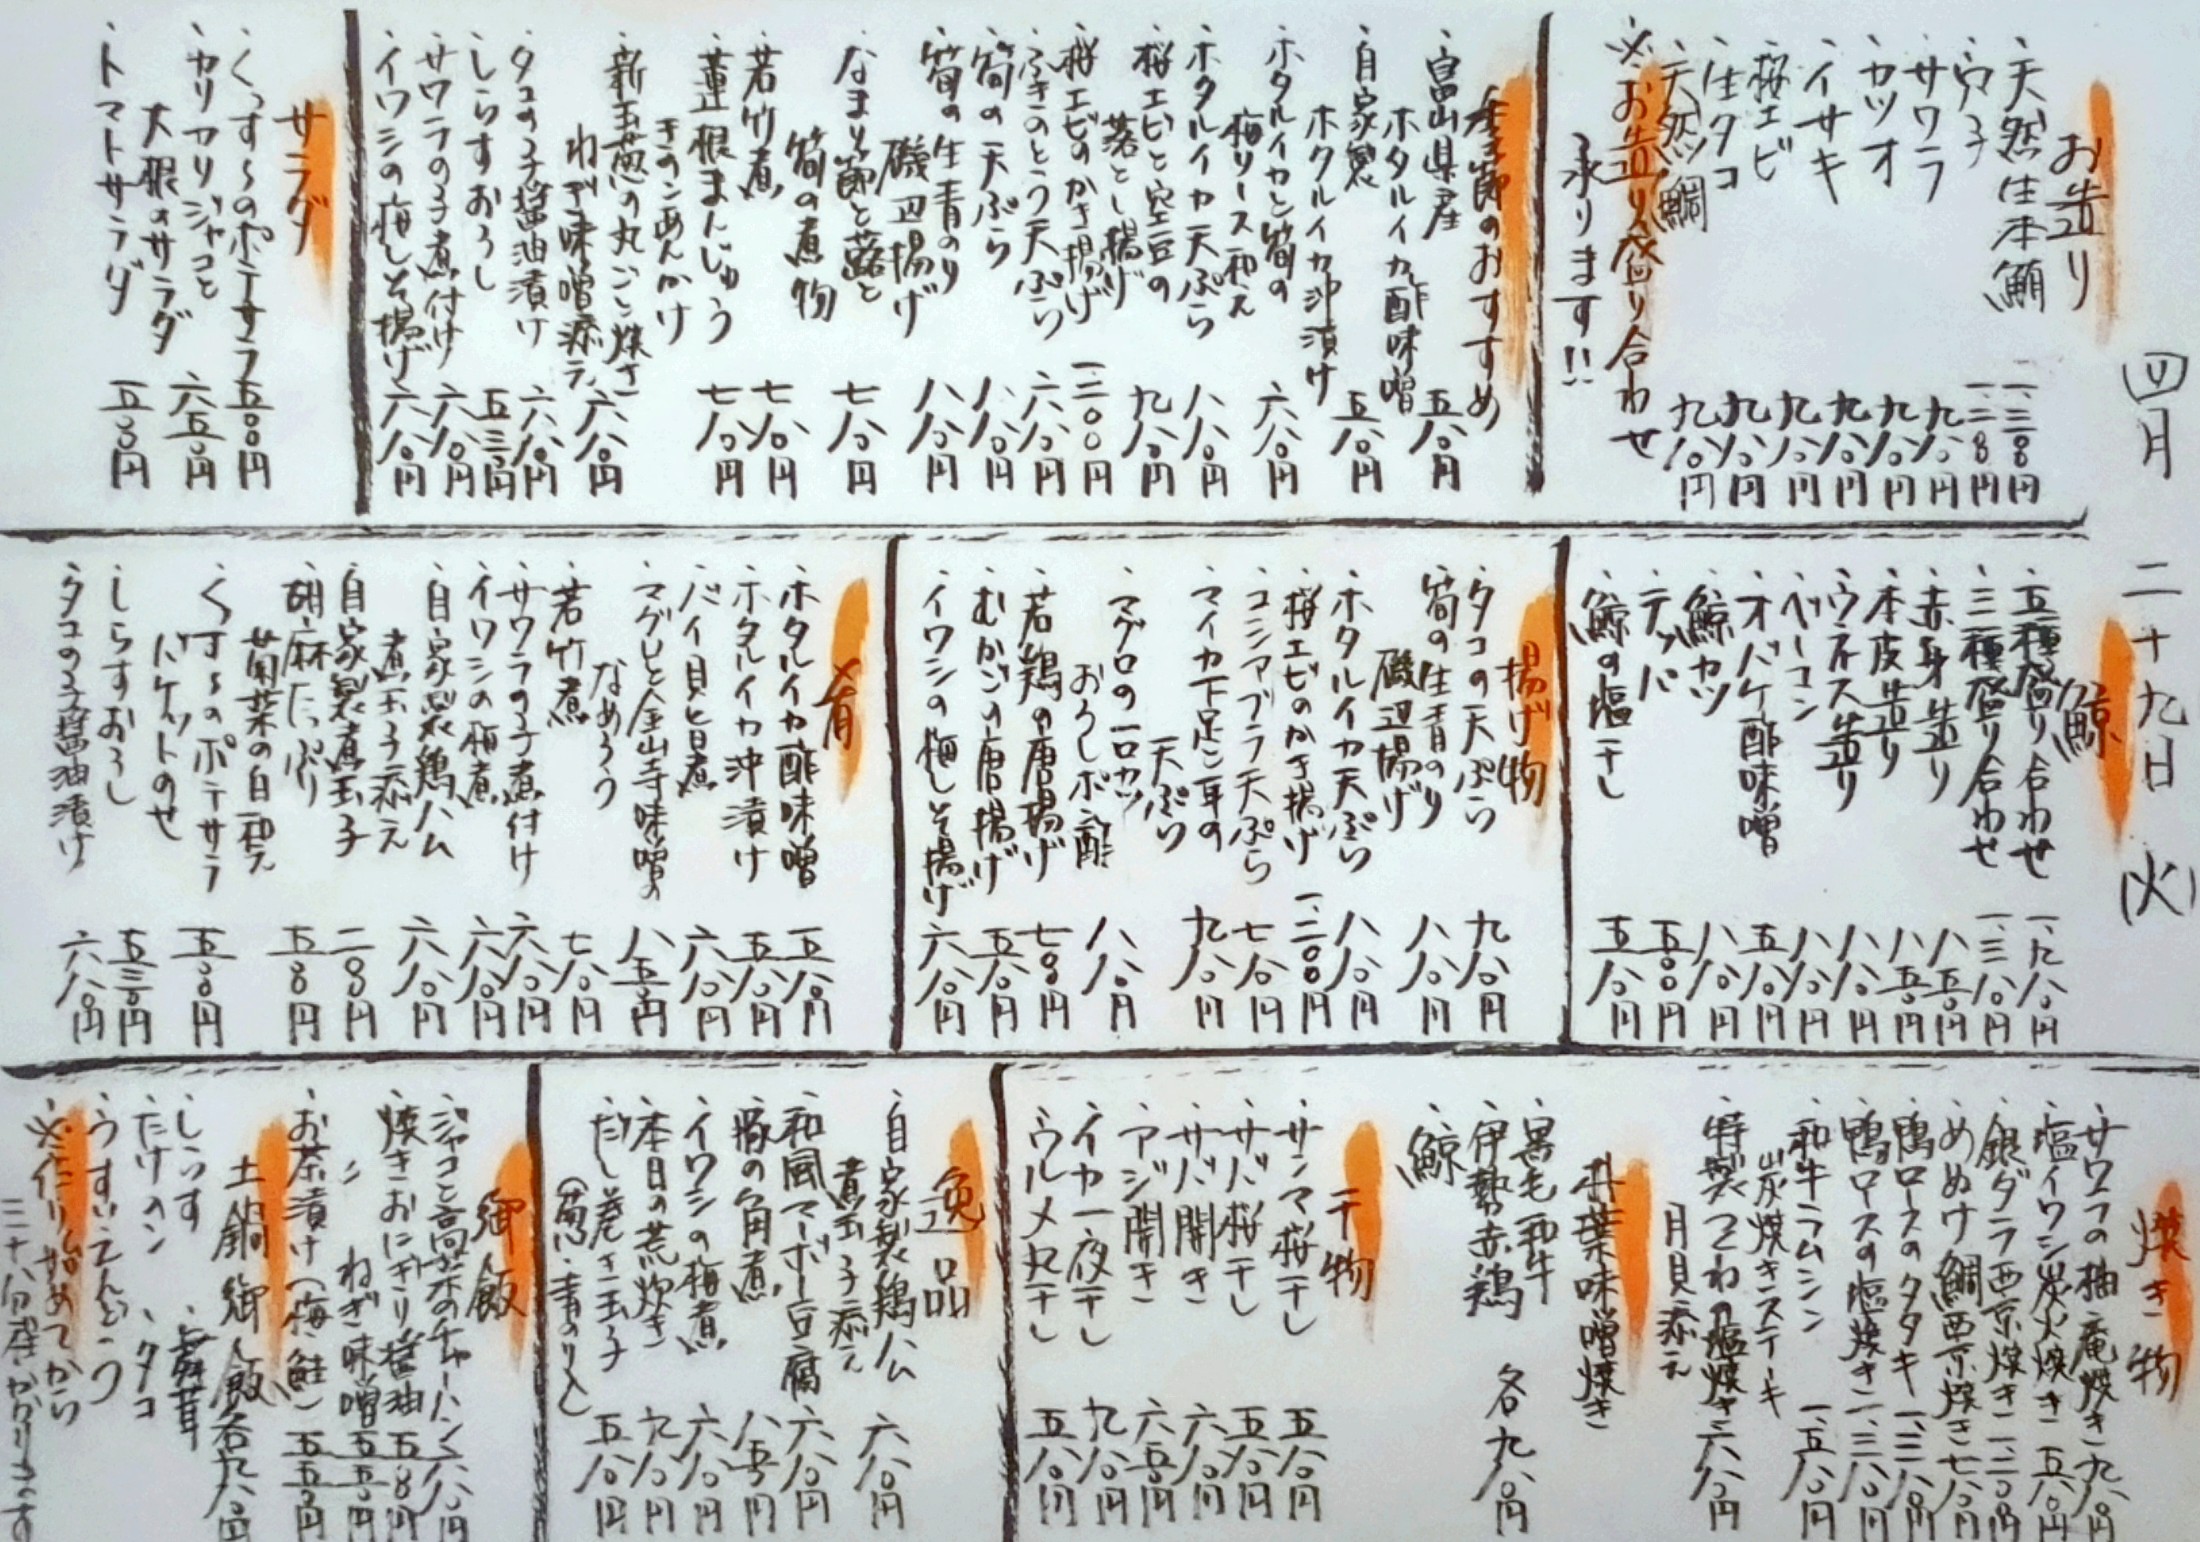 四月二十九日(火)
お造り
・天然生本鮪 一、三八〇円
・穴子 一、二八〇円
・サワラ 九八〇円
・カツオ 九八〇円
・イサキ 九八〇円
・桜エビ 九八〇円
・生タコ 九八〇円
・天然鯛 九八〇円
※お造り盛り合わせ
承ります!!
季節のおすすめ
・富山県産
ホタルイカ酢味噌 五八〇円
・自家製
ホタルイカ沖漬け 五八〇円
・ホタルイカと筍の
梅ソース和え 六八〇円
・ホタルイカ天ぷら 八八〇円
・桜エビと空豆の
落とし揚げ 九八〇円
・桜エビのかき揚げ 一、二〇〇円
・ふきのとう天ぷら 六八〇円
・筍の天ぷら 八八〇円
・筍の生青のり
磯辺揚げ 八八〇円
・なまり節と蕗と
筍の煮物 七八〇円
・若竹煮 七八〇円
・蓮根まんじゅう
きのこあんかけ 七八〇円
・新玉葱の丸ごと焼き
ねぎ味噌添え 六八〇円
・タコの子醤油漬け 六八〇円
・しらすおろし 五三〇円
・サワラの子煮付け 六八〇円
・イワシの梅しそ揚げ 六八〇円
サラダ
・くっす〜のポテサラ 五〇〇円
・カリカリジャコと
大根のサラダ 六五〇円
・トマトサラダ 五八〇円
鯨
・五種盛り合わせ 一、九八〇円
・三種盛り合わせ 一、三八〇円
・赤身造り 八五〇円
・本皮造り 八五〇円
・ウネス造り 八八〇円
・ベーコン 八八〇円
・オバケ酢味噌 五八〇円
・鯨カツ 八八〇円
・テッパ 五〇〇円
・鯨の塩干し 五八〇円
揚げ物
・タコの天ぷら 九八〇円
・筍の生青のり
磯辺揚げ 八八〇円
・ホタルイカ天ぷら 八八〇円
・桜エビのかき揚げ 一、二〇〇円
・コシアブラ天ぷら 七八〇円
・マイカ下足と耳の
天ぷら 九八〇円
・マグロの一口カツ
おろしポン酢 八八〇円
・若鶏の唐揚げ 七〇〇円
・むかごの唐揚げ 五八〇円
・イワシの梅しそ揚げ 六八〇円
肴
・ホタルイカ酢味噌 五八〇円
・ホタルイカ沖漬け 五八〇円
・バイ貝旨煮 六八〇円
・マグロと金山寺味噌の
なめろう 八五〇円
・若竹煮 七八〇円
・サワラの子煮付け 六八〇円
・イワシの梅煮 六八〇円
・自家製鶏ハム
煮玉子添え 六八〇円
・自家製煮玉子 二八〇円
・胡麻たっぷり
菊菜の白和え 五八〇円
・くっす〜のポテサラ
バケットのせ 五八〇円
・しらすおろし 五三〇円
・タコの子醤油漬け 六八〇円
焼き物
・サワラの柚庵焼き 九八〇円
・塩イワシ炭火焼き 五八〇円
・銀ダラ西京焼き 一、二八〇円
・めぬけ鯛西京焼き 七八〇円
・鴨ロースのタタキ 一、三八〇円
・鴨ロースの塩焼き 一、三八〇円
・和牛ラムシン
炭焼きステーキ 一、五八〇円
・特製つくねの塩焼き
月見添え 六八〇円
朴葉味噌焼き
・黒毛和牛
・伊勢赤鶏 各九八〇円
・鯨
干物
・サンマ桜干し 五八〇円
・サバ桜干し 五八〇円
・サバ開き 六八〇円
・アジ開き 六五〇円
・イカ一夜干し 九八〇円
・ウルメ丸干し 五八〇円
逸品
・自家製鶏ハム
煮玉子添え 六八〇円
・和風マーボー豆腐 六八〇円
・豚の角煮 八五〇円
・イワシの梅煮 六八〇円
・本日の荒炊き 九八〇円
・だし巻き玉子
(葱・青のり入) 五八〇円
御飯
・ジャコと高菜のチャーハン 八八〇円
・焼きおにぎり醤油 五〇〇円
・〃 ねぎ味噌 五五〇円
・お茶漬け(梅・鮭) 五五〇円
土鍋御飯 各九八〇円
・しらす ・舞茸
・たけのこ ・タコ
・うすいえんどう
※作り始めてから
三十八分程かかります